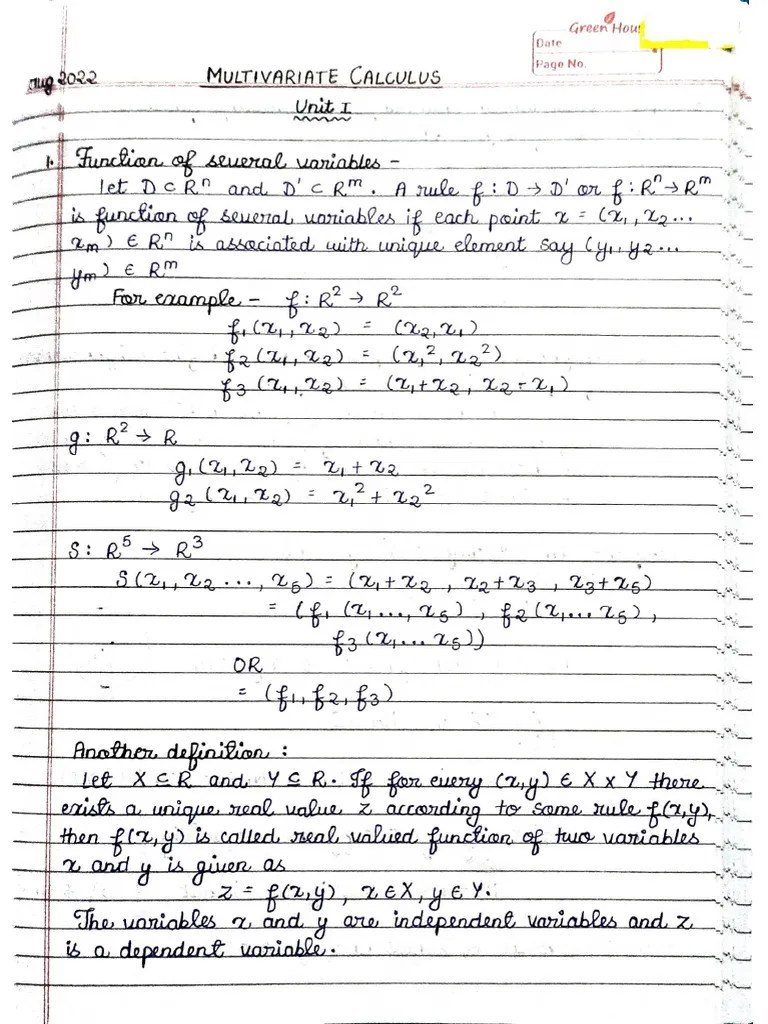 Green Hou
Date
Page No.
Aug 2022
MULTIVARIATE CALCULUS
Unit I
1. Function of several variables -
let D ⊂ Rⁿ and D' ⊂ Rᵐ. A rule f : D → D' or f : Rⁿ → Rᵐ
is function of several variables if each point x = (x₁, x₂...
xₘ) ∈ Rⁿ is associated with unique element say (y₁, y₂...
yₘ) ∈ Rᵐ
For example - f : R² → R²
f₁(x₁, x₂) = (x₂, x₁)
f₂(x₁, x₂) = (x₁², x₂²)
f₃(x₁, x₂) = (x₁+x₂, x₂-x₁)
g : R² → R
g₁(x₁, x₂) = x₁ + x₂
g₂(x₁, x₂) = x₁² + x₂²
S : R⁵ → R³
S(x₁, x₂ ..., x₅) = (x₁+x₂, x₂+x₃, x₃+x₅)
= (f₁(x₁..., x₅), f₂(x₁... x₅),
f₃(x₁... x₅))
OR
= (f₁, f₂, f₃)
Another definition :
Let X ⊆ R and Y ⊆ R. If for every (x,y) ∈ X x Y there
exists a unique real value z according to some rule f(x,y),
then f(x,y) is called real valued function of two variables
x and y is given as
z = f(x,y), x ∈ X, y ∈ Y.
The variables x and y are independent variables and z
is a dependent variable.